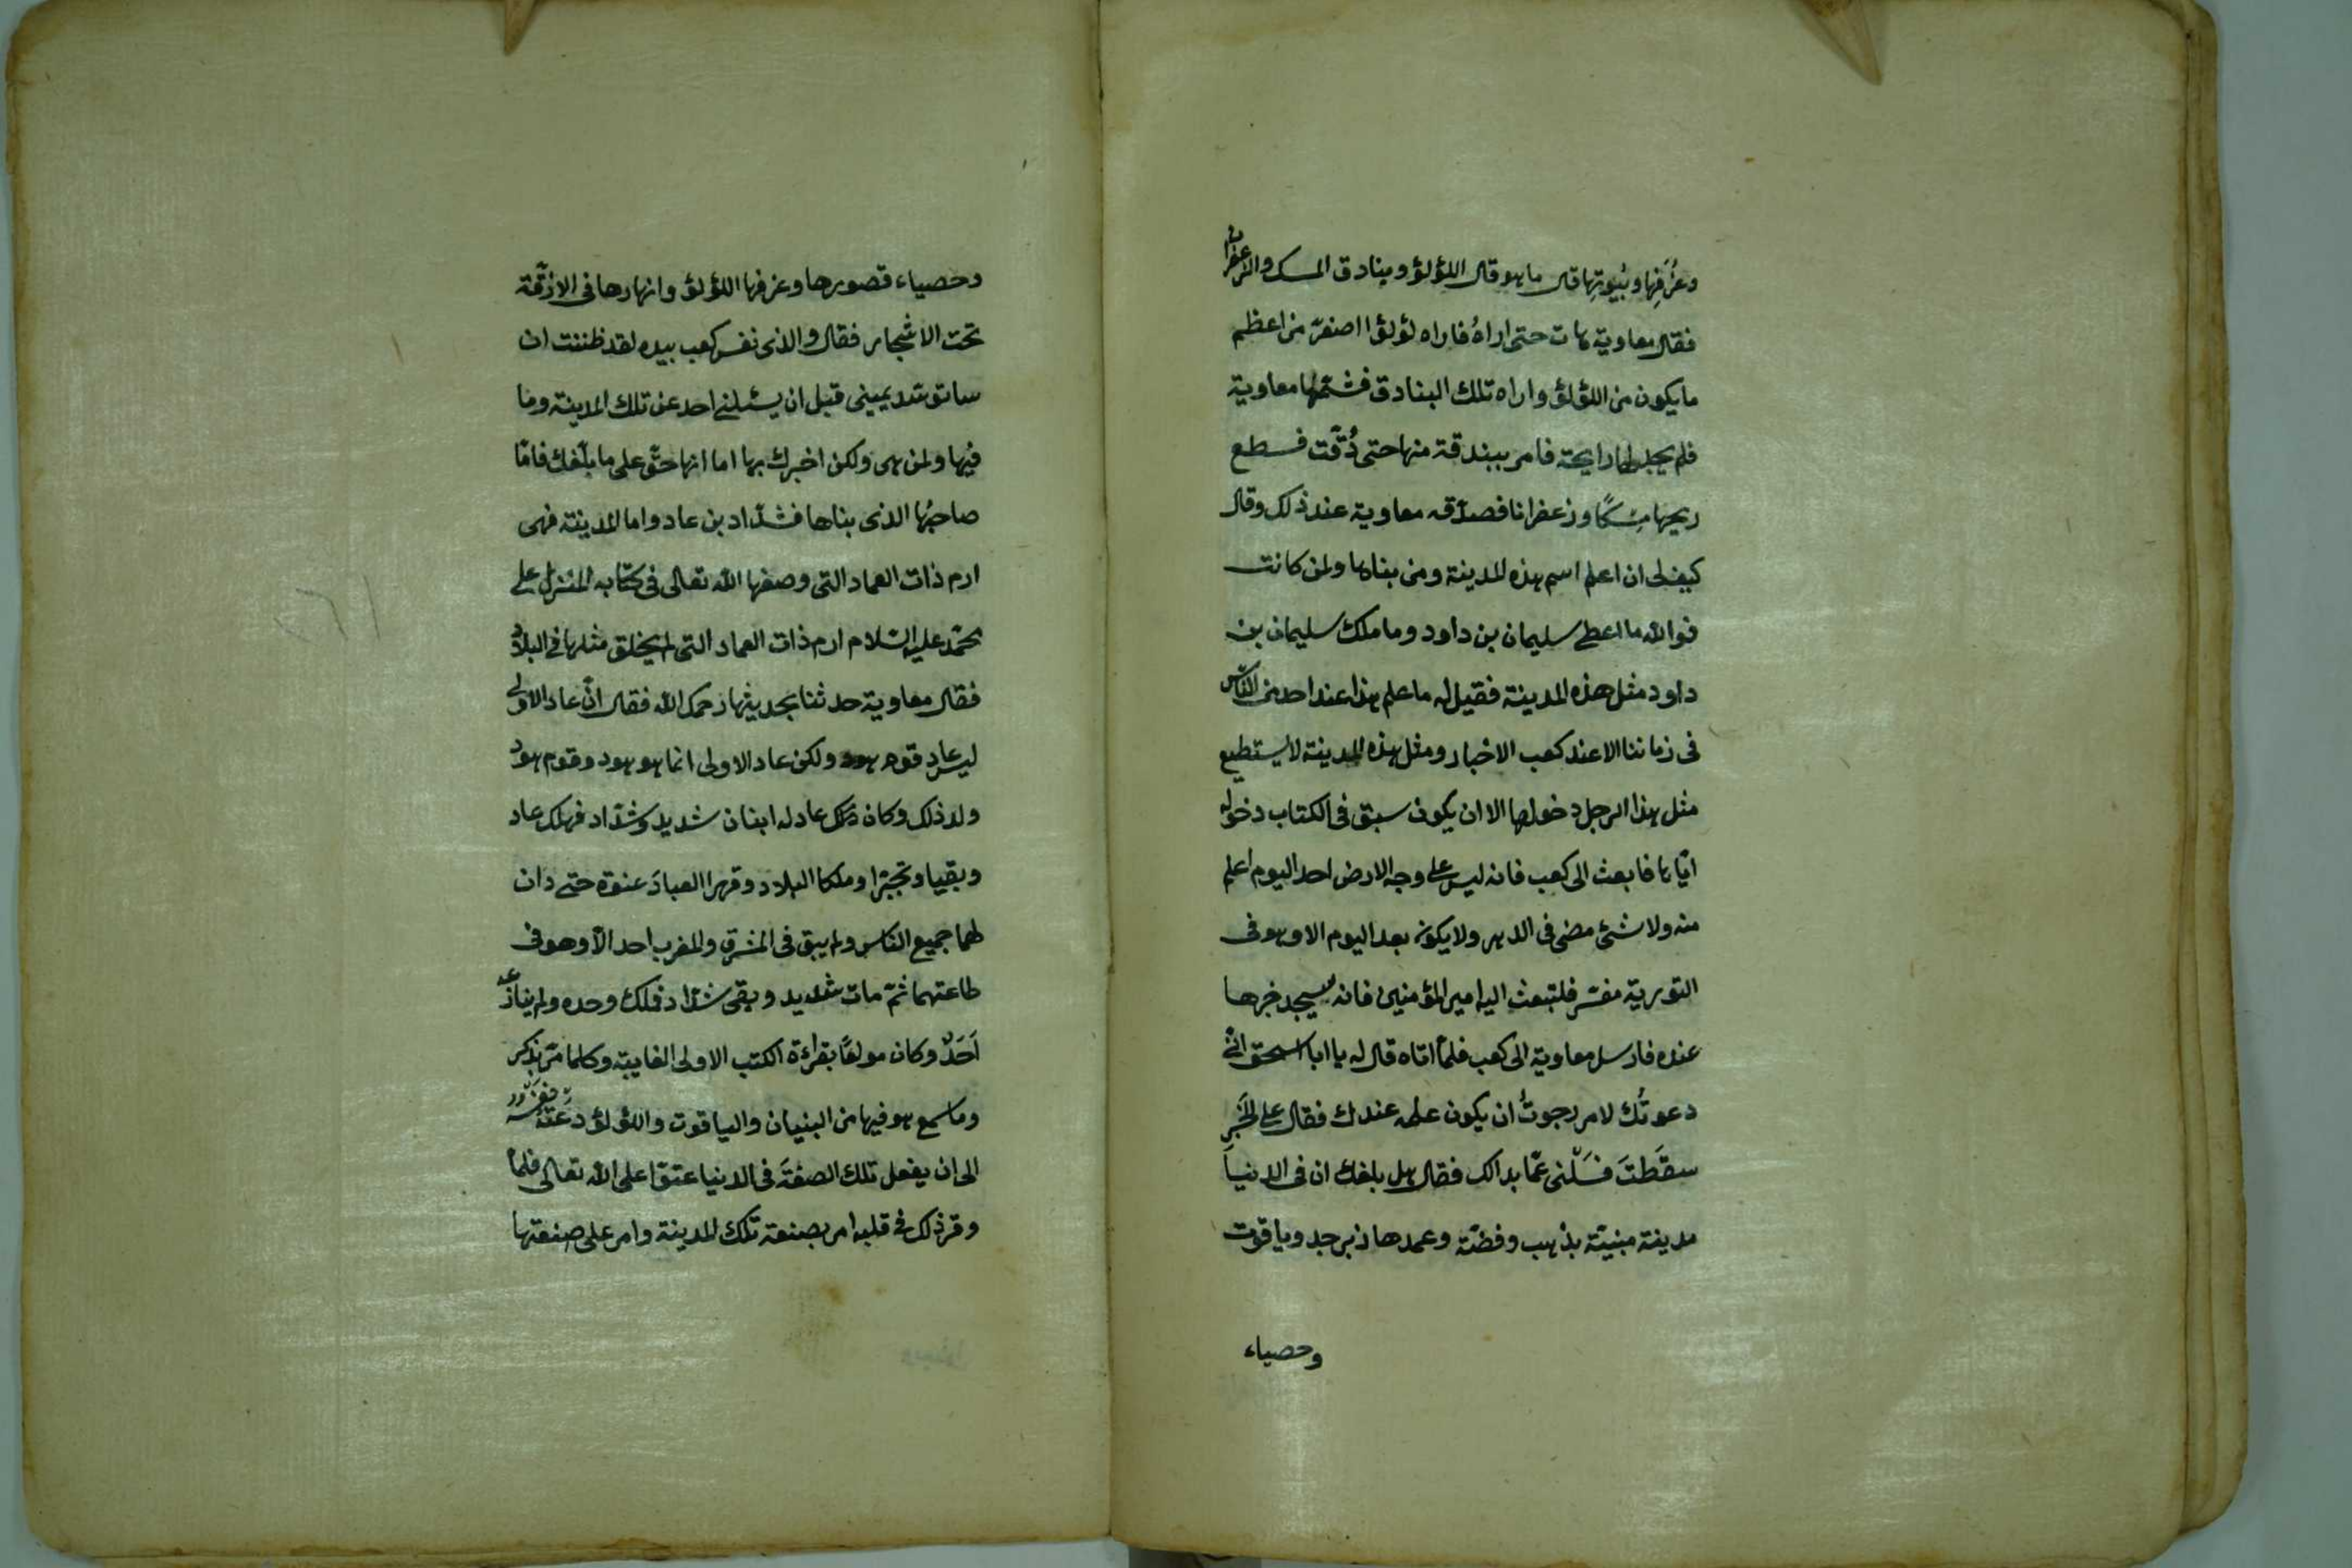 وغُرَفِها وبُيوتِها قال ما هو قال اللؤلؤ وبنادق المسك والزعفران
فقال معاوية هات حتى اراهُ فاراه لؤلؤا اصفر من اعظم
ما يكون من اللؤلؤ واراه تلك البنادق فشمّها معاوية
فلم يجد لها رايحة فامر ببندقة منها حتى دُقّت فسطع
ريحها مِسْكًا وزعفرانا فصدّقه معاوية عند ذلك وقال
كيف لى ان اعلم اسم هذه المدينة ومن بناها ولمن كانت
فوالله ما اعطى سليمان بن داود وما ملك سليمان بن
داود مثل هذه المدينة فقيل له ما علم هذا عند احد من النّاس
فى زماننا الا عند كعب الاخبار ومثل هذه المدينة لا يستطيع
مثل هذا الرجل دخولها الا ان يكون سبق فى الكتاب دخوله
ايّاها فابعث الى كعب فانه ليس على وجه الارض احد اليوم اعلم
منه ولا شئ مضى فى الدهر ولا يكون بعد اليوم الا وهو فى
التورية مفسّر فلتبعث اليه امير المؤمنين فانه سيجد خبرها
عنده فارسل معاوية الى كعب فلمّا اتاه قال له يا ابا اسحق انّى
دعوتُك لامر رجوتُ ان يكون علمه عندك فقال على الخَبِر
سقَطتَ فسَلْنى عمّا بدا لك فقال هل بلغك ان فى الدنيا
مدينة مبنيّة بذهب وفضّة وعمدها زبرجد وياقوت
وحصباء
وحصباء قصورها وغرفها اللؤلؤ وانهارها فى الازقّة
تحت الاشجار فقال والذى نفس كعب بيده لقد ظننت ان
ساتوسّد يمينى قبل ان يسئلنى احد عن تلك المدينة وما
فيها ولمن هى ولكن اخبرك بها اما انها حقّ على ما بلّغك فامّا
صاحبُها الذى بناها فشدّاد بن عاد واما المدينة فهى
ارم ذات العماد التى وصفها الله تعالى فى كتابه المنزل على
محمّد عليه السّلام ارم ذات العماد التى لم يخلق مثلها فى البلاد
فقال معاوية حدثنا بحديثها رحمك الله فقال انّ عاد الاولى
ليس عاد قوم هود ولكن عاد الاولى انما هو هود وقوم هود
ولد ذلك وكان ذلك عاد له ابنان شديد وشدّاد فهلك عاد
وبقيا وتجبّرا وملكا البلاد وقهرا العبادَ عنوة حتى دان
لهما جميع الناس ولم يبق فى المشرق والمغرب احد الّا وهو فى
طاعتهما ثمّ مات شديد وبقى شدّاد فملك وحده ولم ينازعه
اَحَدٌ وكان مولعًا بقراءة الكتب الاولى الغايبة وكلما مرّ بذكر
وما سمع هو فيها من البنيان والياقوت واللؤلؤ دعَتهُ نفسه
الى ان يفعل تلك الصفةَ فى الدنيا عتوّا على الله تعالى فلمّا
وقر ذلك فى قلبه امر بصنعة تلك المدينة وامر على صنعتها